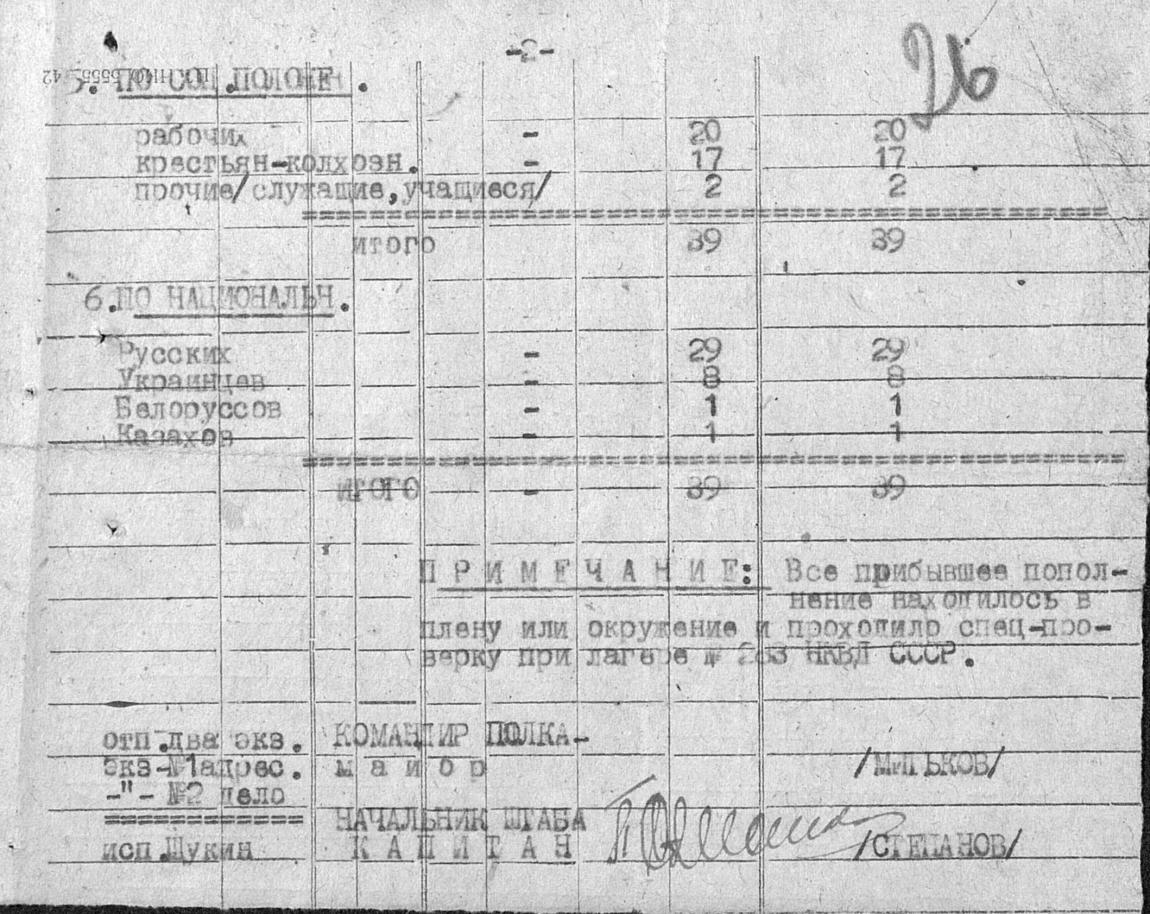 -2-
26
5. ПО СОЦ.ПОЛОЖЕ .
рабочих - 20 20
крестьян-колхозн. - 17 17
прочие/служащие,учащиеся/ 2 2
итого 39 39
6.ПО НАЦИОНАЛЬН.
Русских - 29 29
Украинцев - 8 8
Белоруссов - 1 1
Казахов - 1 1
итого - 39 39
ПРИМЕЧАНИЕ: Все прибывшее попол-
нение находилось в
плену или окружение и проходило спец-про-
верку при лагере № 283 НКВД СССР.
отп.два экз. КОМАНДИР ПОЛКА-
экз-№1адрес. майор /МИЛЬКОВ/
-"- №2 дело
НАЧАЛЬНИК ШТАБА
исп.Щукин КАПИТАН /СТЕПАНОВ/